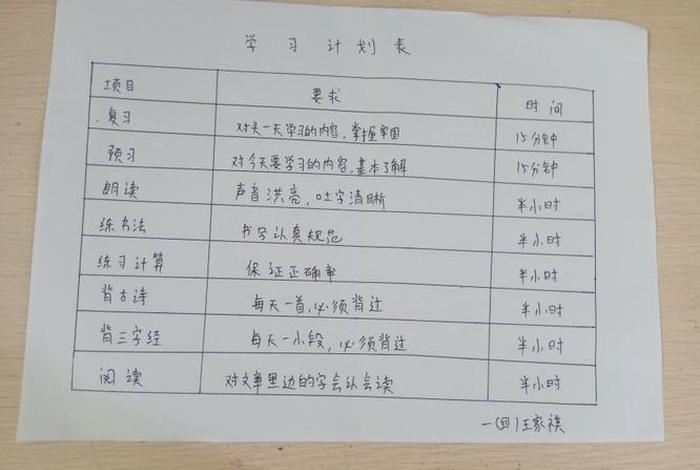 学习计划表
项目 要求 时间
复习 对头一天学习的内容，掌握牢固 15分钟
预习 对今天要学习的内容，基本了解 15分钟
朗读 声音洪亮，吐字清晰 半小时
练书法 书写认真规范 半小时
练习计算 保证正确率 半小时
背古诗 每天一首，必须背过 半小时
背三字经 每天一小段，必须背过 半小时
阅读 对文章里边的字会认会读 半小时
一（四）王家祺